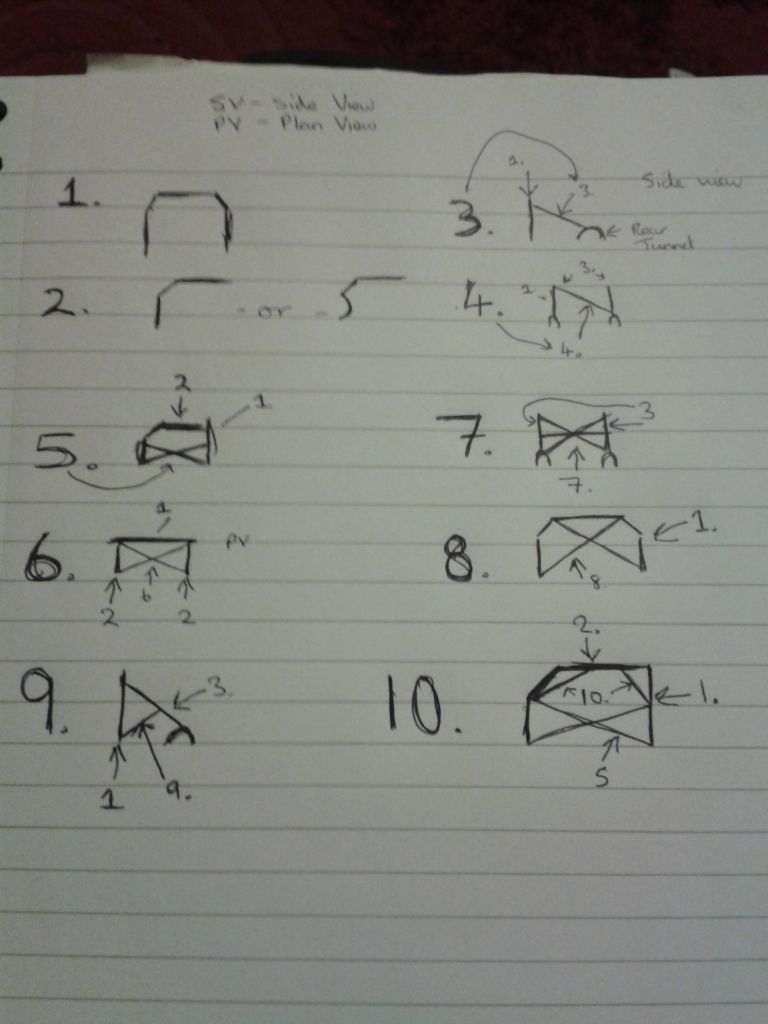 SV = Side View
PV = Plan View
1.
3.
1.
3.
Side view
Rear
Tunnel
2.
- or -
4.
1.
3.
4.
5.
2
1
7.
3
7.
6.
1
PV
2
6
2
8.
1.
8.
9.
3.
1
9.
10.
2.
10.
1.
5